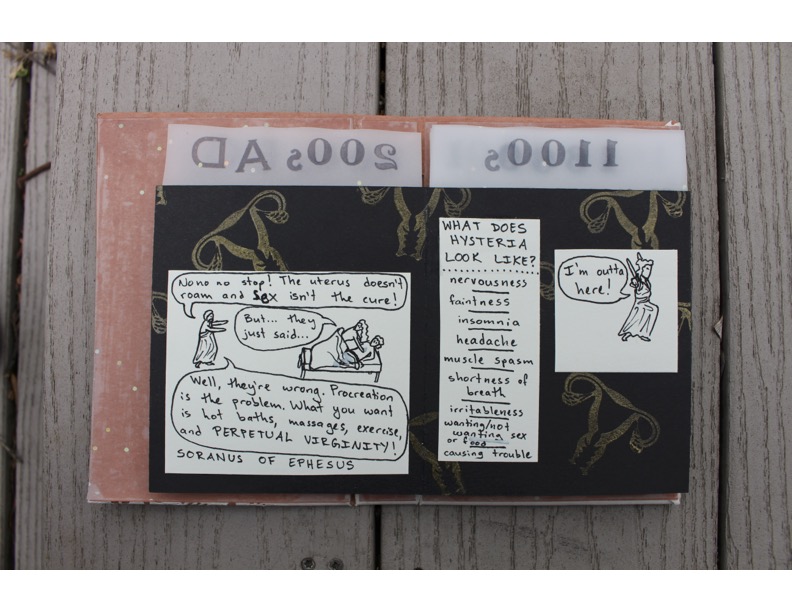 200s AD
1100s
Nono no stop! The uterus doesn't
roam and sex isn't the cure!
But... they
just said...
Well, they're wrong. Procreation
is the problem. What you want
is hot baths, massages, exercise,
and PERPETUAL VIRGINITY!
SORANUS OF EPHESUS
WHAT DOES
HYSTERIA
LOOK LIKE?
nervousness
faintness
insomnia
headache
muscle spasm
shortness of
breath
irritableness
wanting/not
wanting sex
or food
causing trouble
I'm outta
here!